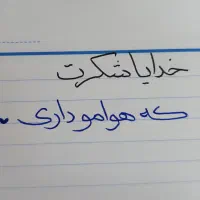 خدایا شکرت
که هوامو داری